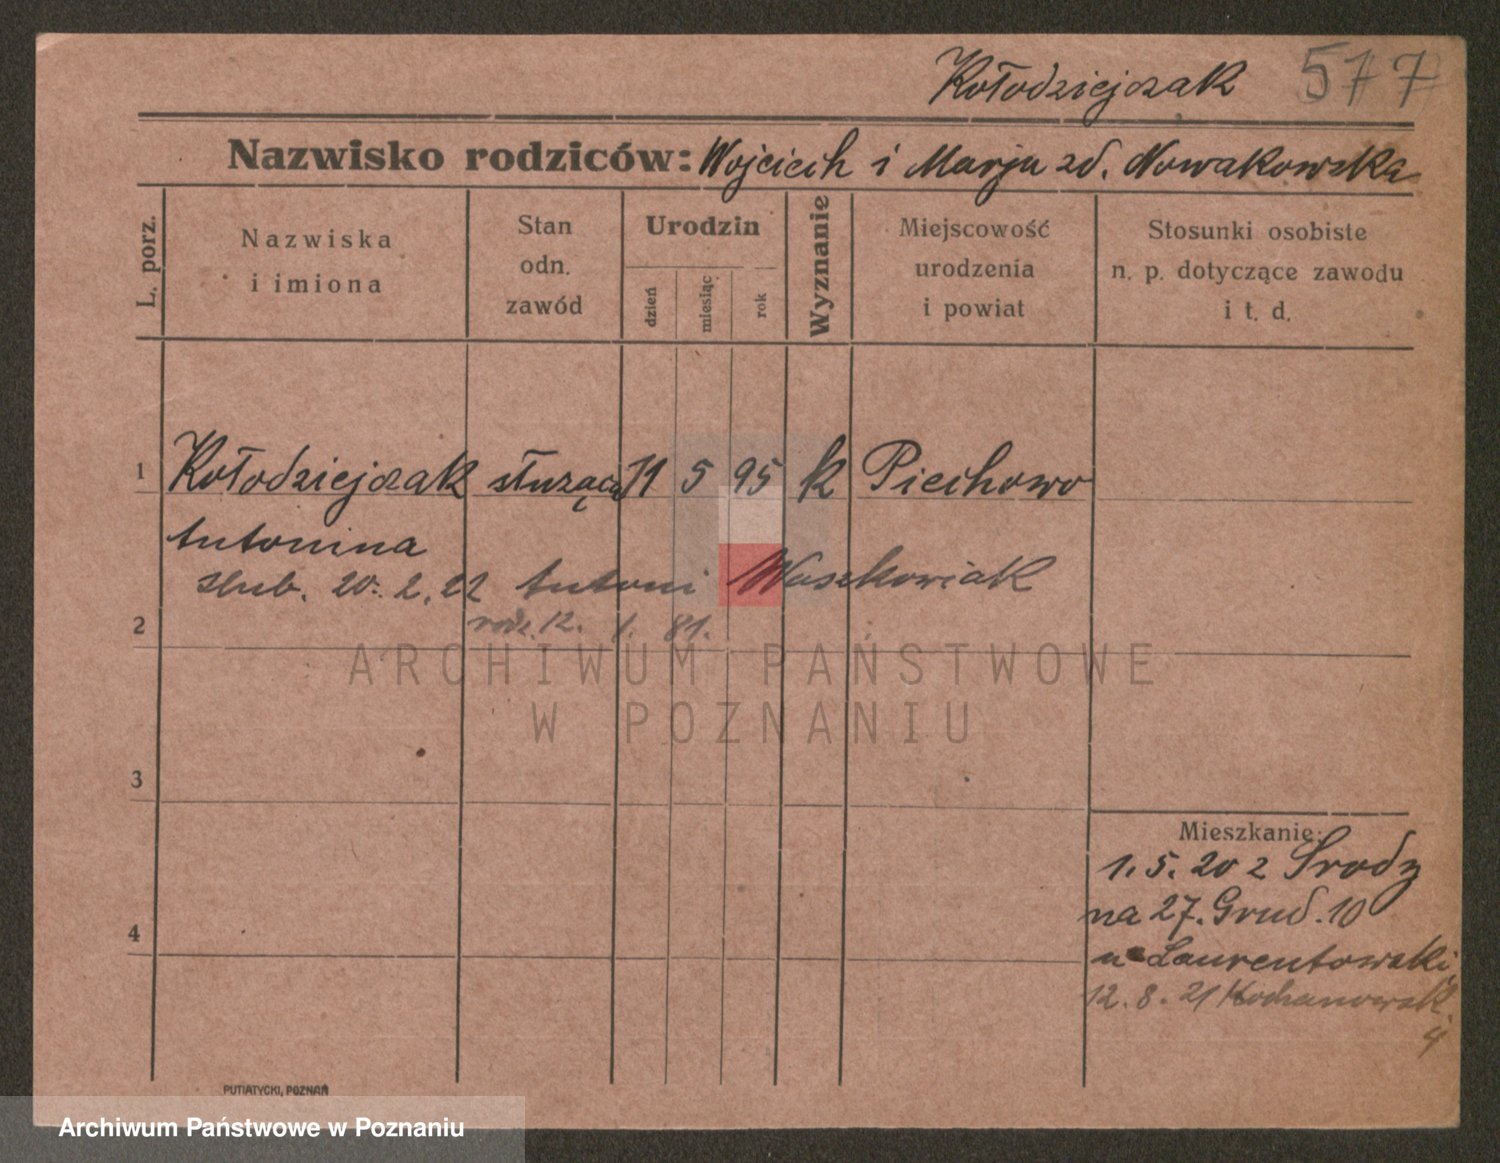 Kołodziejczak 577
Nazwisko rodziców: Wojciech i Marja zd. Nowakowska
L. porz.
Nazwiska
i imiona
Stan
odn.
zawód
Urodzin
dzień
miesiąc
rok
Wyznanie
Miejscowość
urodzenia
i powiat
Stosunki osobiste
n. p. dotyczące zawodu
i t. d.
1 Kołodziejczak służąca 11 5 95 k Piechowo
Antonina
ślub. 20. 2. 22 Antoni Waszkowiak
2 rodz. 12. 1. 81.
ARCHIWUM PAŃSTWOWE
W POZNANIU
3
Mieszkanie:
1. 5. 20 z Środy
na 27. Grud. 10
4
u Laurentowski
12. 8. 21 Kochanowsk.
4
PUTIATYCKI, POZNAŃ
Archiwum Państwowe w Poznaniu